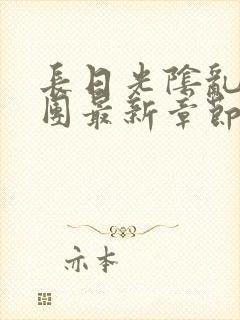 長日光陰亂
團最新章節
亦本